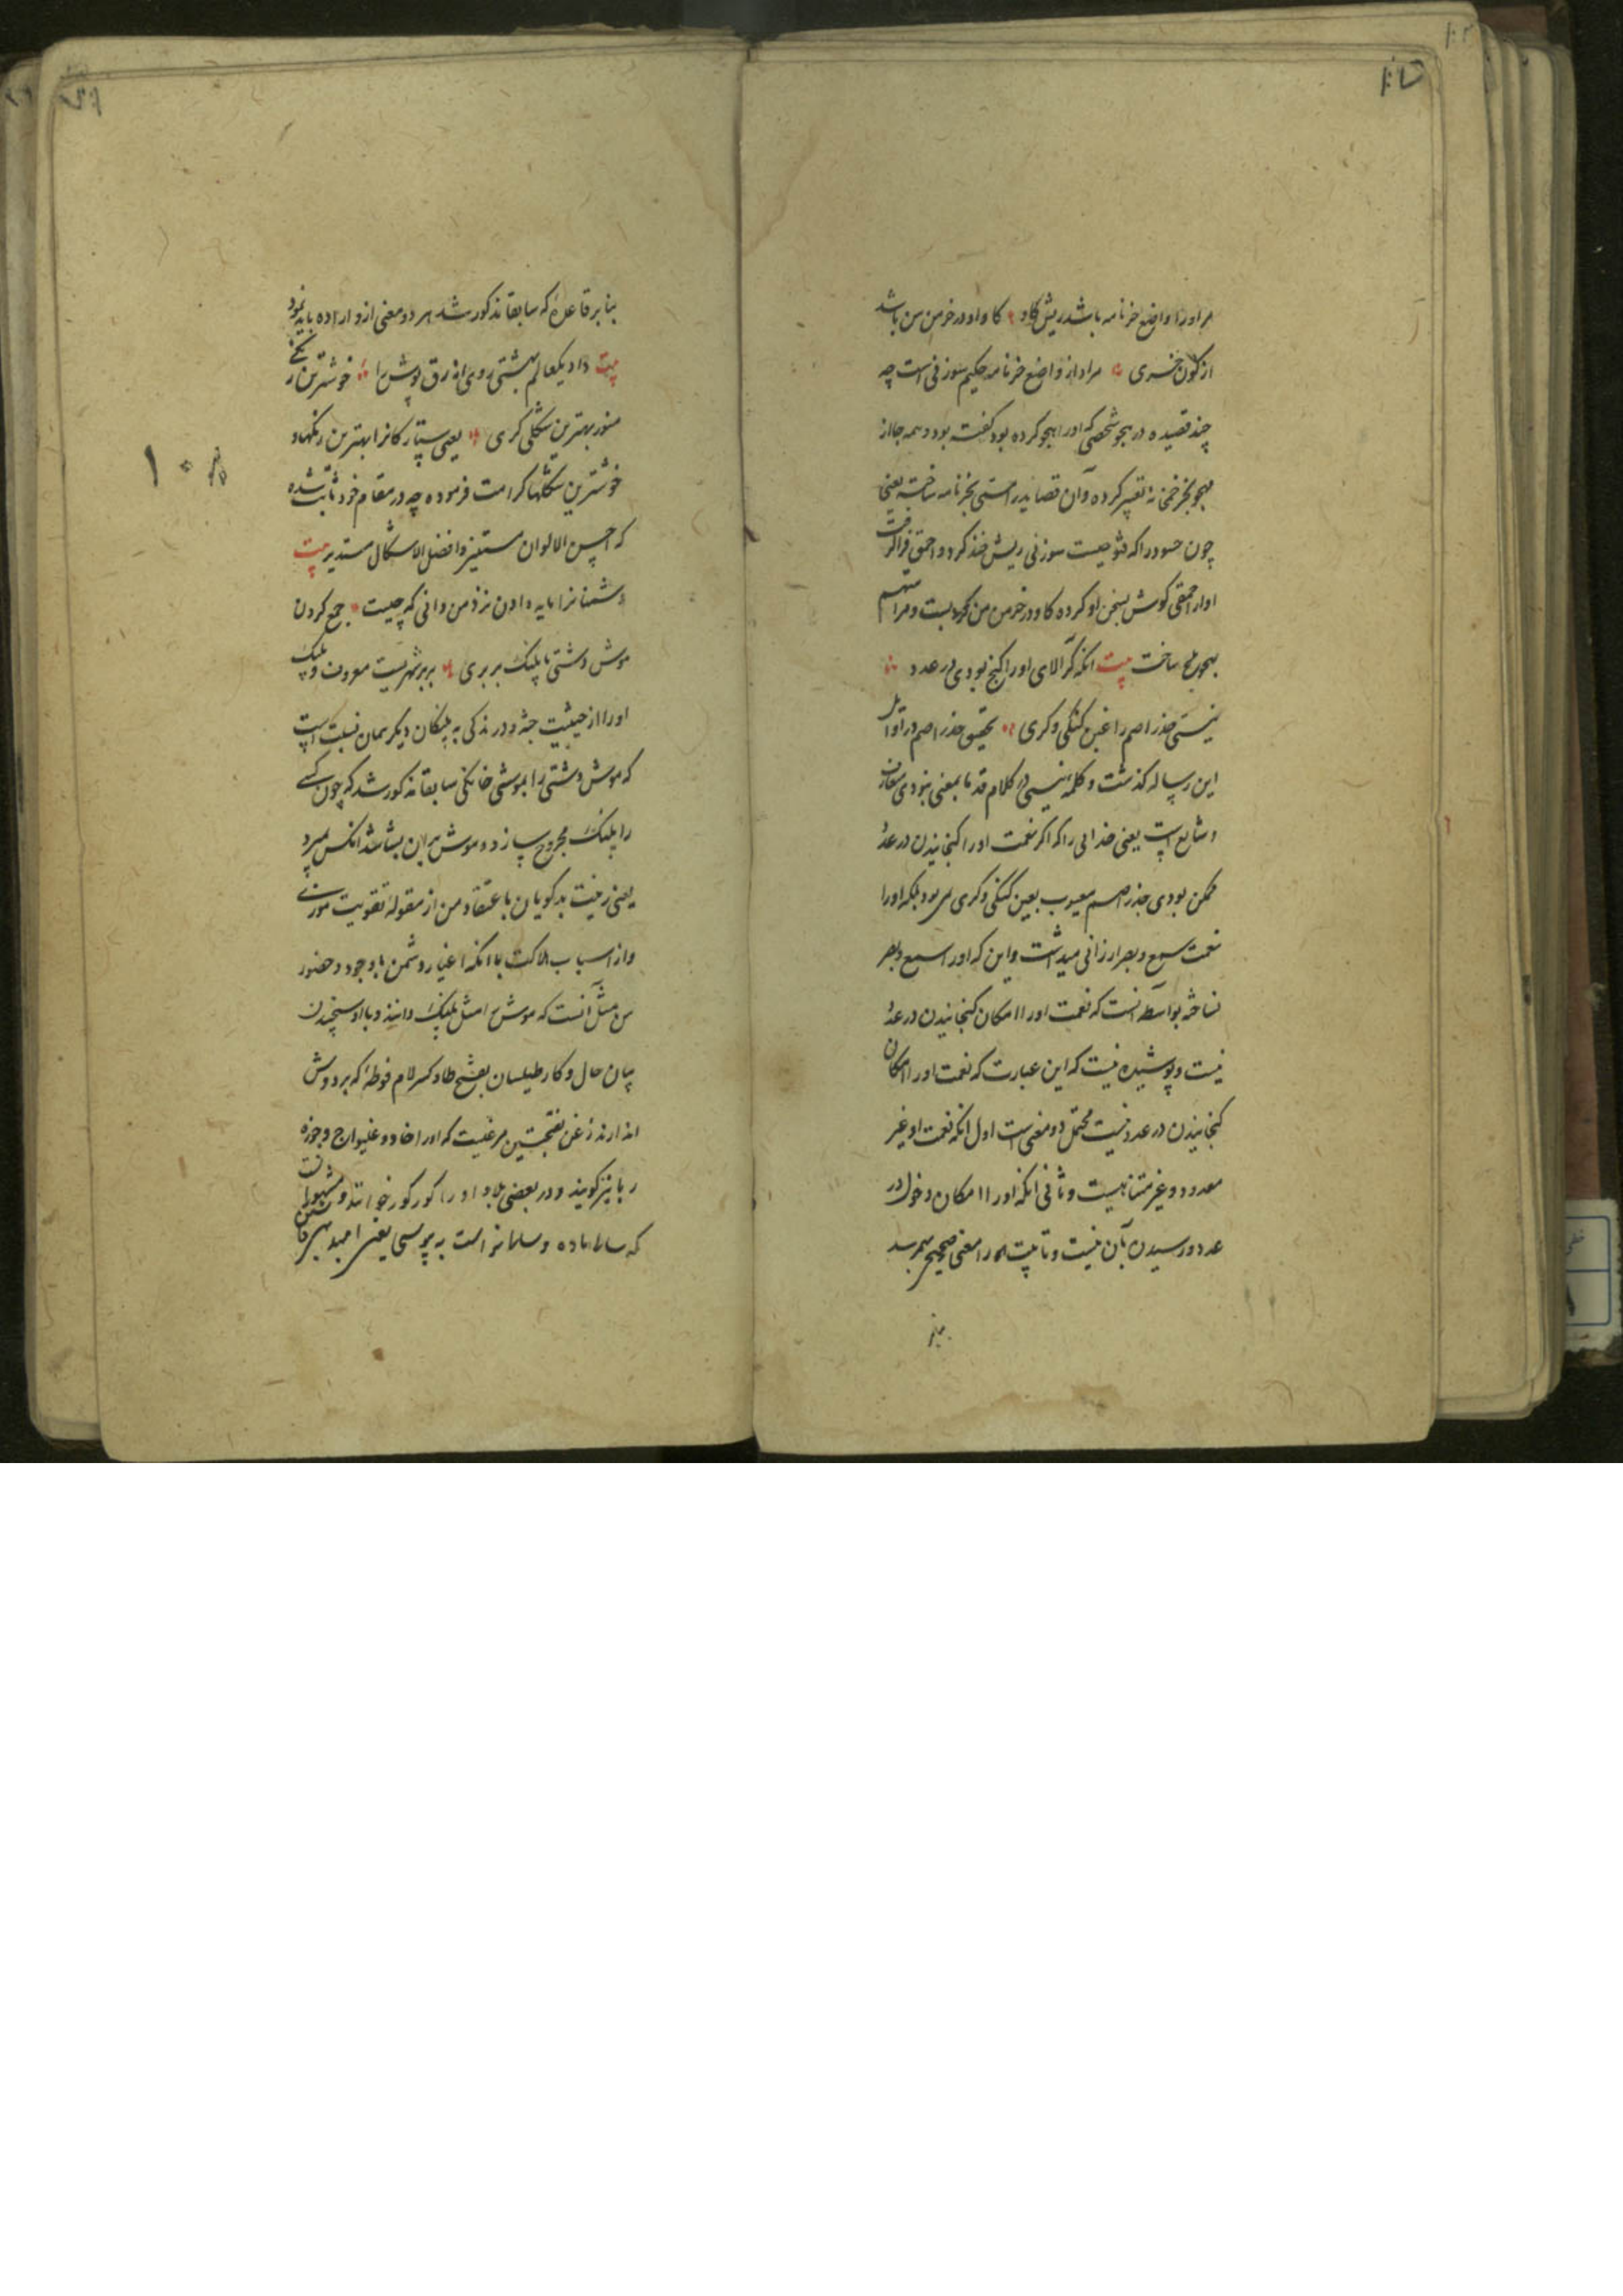 مر او را واضع خرنامه باشد ریش گاو ؞ گاو او در خرمن من باشد
از کون خری ؞ مراد از واضع خرنامه حکیم سوزنی است چه
چند قصیده در هجو شخصی که او را هجو کرده بود گفته بود و همه جا از
بهجو بخر خمخانه تعبیر کرده و آن قصاید را مسمی بخرنامه ساخته یعنی
چون حسود را که فتوحیست سوزنی ریش خند کرد و احمق فرا گرفت
او از احمقی گوش بسخن او کرده گاو در خرمن من کرد و مرا متهم
بهجو بلخ ساخت بیت انکه گر آلای او را گنج بودی در عدد ؞
نیستی جذر اصم را غبن گنگی و کری ؞ تحقیق جذر اصم در اوایل
این رساله گذشت و کلمه نیستی در کلام قدما بمعنی نبودی متعارف
و شایع است یعنی خدایی را که اگر نعمت او را گنجانیدن در عدد
ممکن بودی جذر اصم معیوب بعین گنگی و کری نمی بود بلکه او را
نعمت سمع و بصر ارزانی میداشت و این که او را سمیع و بصر
نساخته بواسطه آنست که نعمت او را امکان گنجانیدن در عدد
نیست و پوشیده نیست که این عبارت که نعمت او را امکان
گنجانیدن در عدد نیست محتمل دو معنی است اول انکه نعمت او غیر
معدود و غیر متناهیست و ثانی انکه او را امکان دخول در
عدد و رسیدن بآن نیست و تا بیت را معنی صحیح بهم رسد
بنابر
بنابر قاعدهٔ که سابقا مذکور شد هر دو معنی ازو اراده باید نمود
بیت داد یکعالم بهشتی روی ازرق پوش را ؞ خوشترین رنگی
منور بهترین شکلی کری ؞ یعنی ستارگانرا بهترین رنگها و
خوشترین شکلها کرامت فرموده چه در مقام خود ثابت شده
که احسن الالوان مستنیر و افضل الاشکال مستدیر بیت
دشمنانرا مایه دادن نزد من دانی که چیست ؞ جمع کردن
موش دشتی با پلنک بربری ؞ بربر شهریست معروف و پلنک
او را از حیثیت جثه و درندگی به پلنکان دیکر همان نسبت است
که موش دشتی را بموش خانکی سابقا مذکور شد که چون کسی
را پلنک مجروح سازد و موش بران بشاشد انکس بمیرد
یعنی زینت بدگویان باعتقاد من از مقوله تقویت موزی
و از اسباب هلاکت با انکه اغیار و دشمن با وجود و حضور
من مثل آنست که موش را مثل پلنک دانند و با او سنجیدن
بیان حال و کار طیلسان بفتح طا و کسر لام فوطهٔ که بر دوش
اندازند زغن بفتحتین مرغیست که او را خاد و غلیواج و جوزه
ربا نیز گویند و در بعضی بلاد او را کورکور خوانند و مشهور است
که سالی ماده و سالی نر است به پوسی یعنی امید بهی فاش
۱۰۸